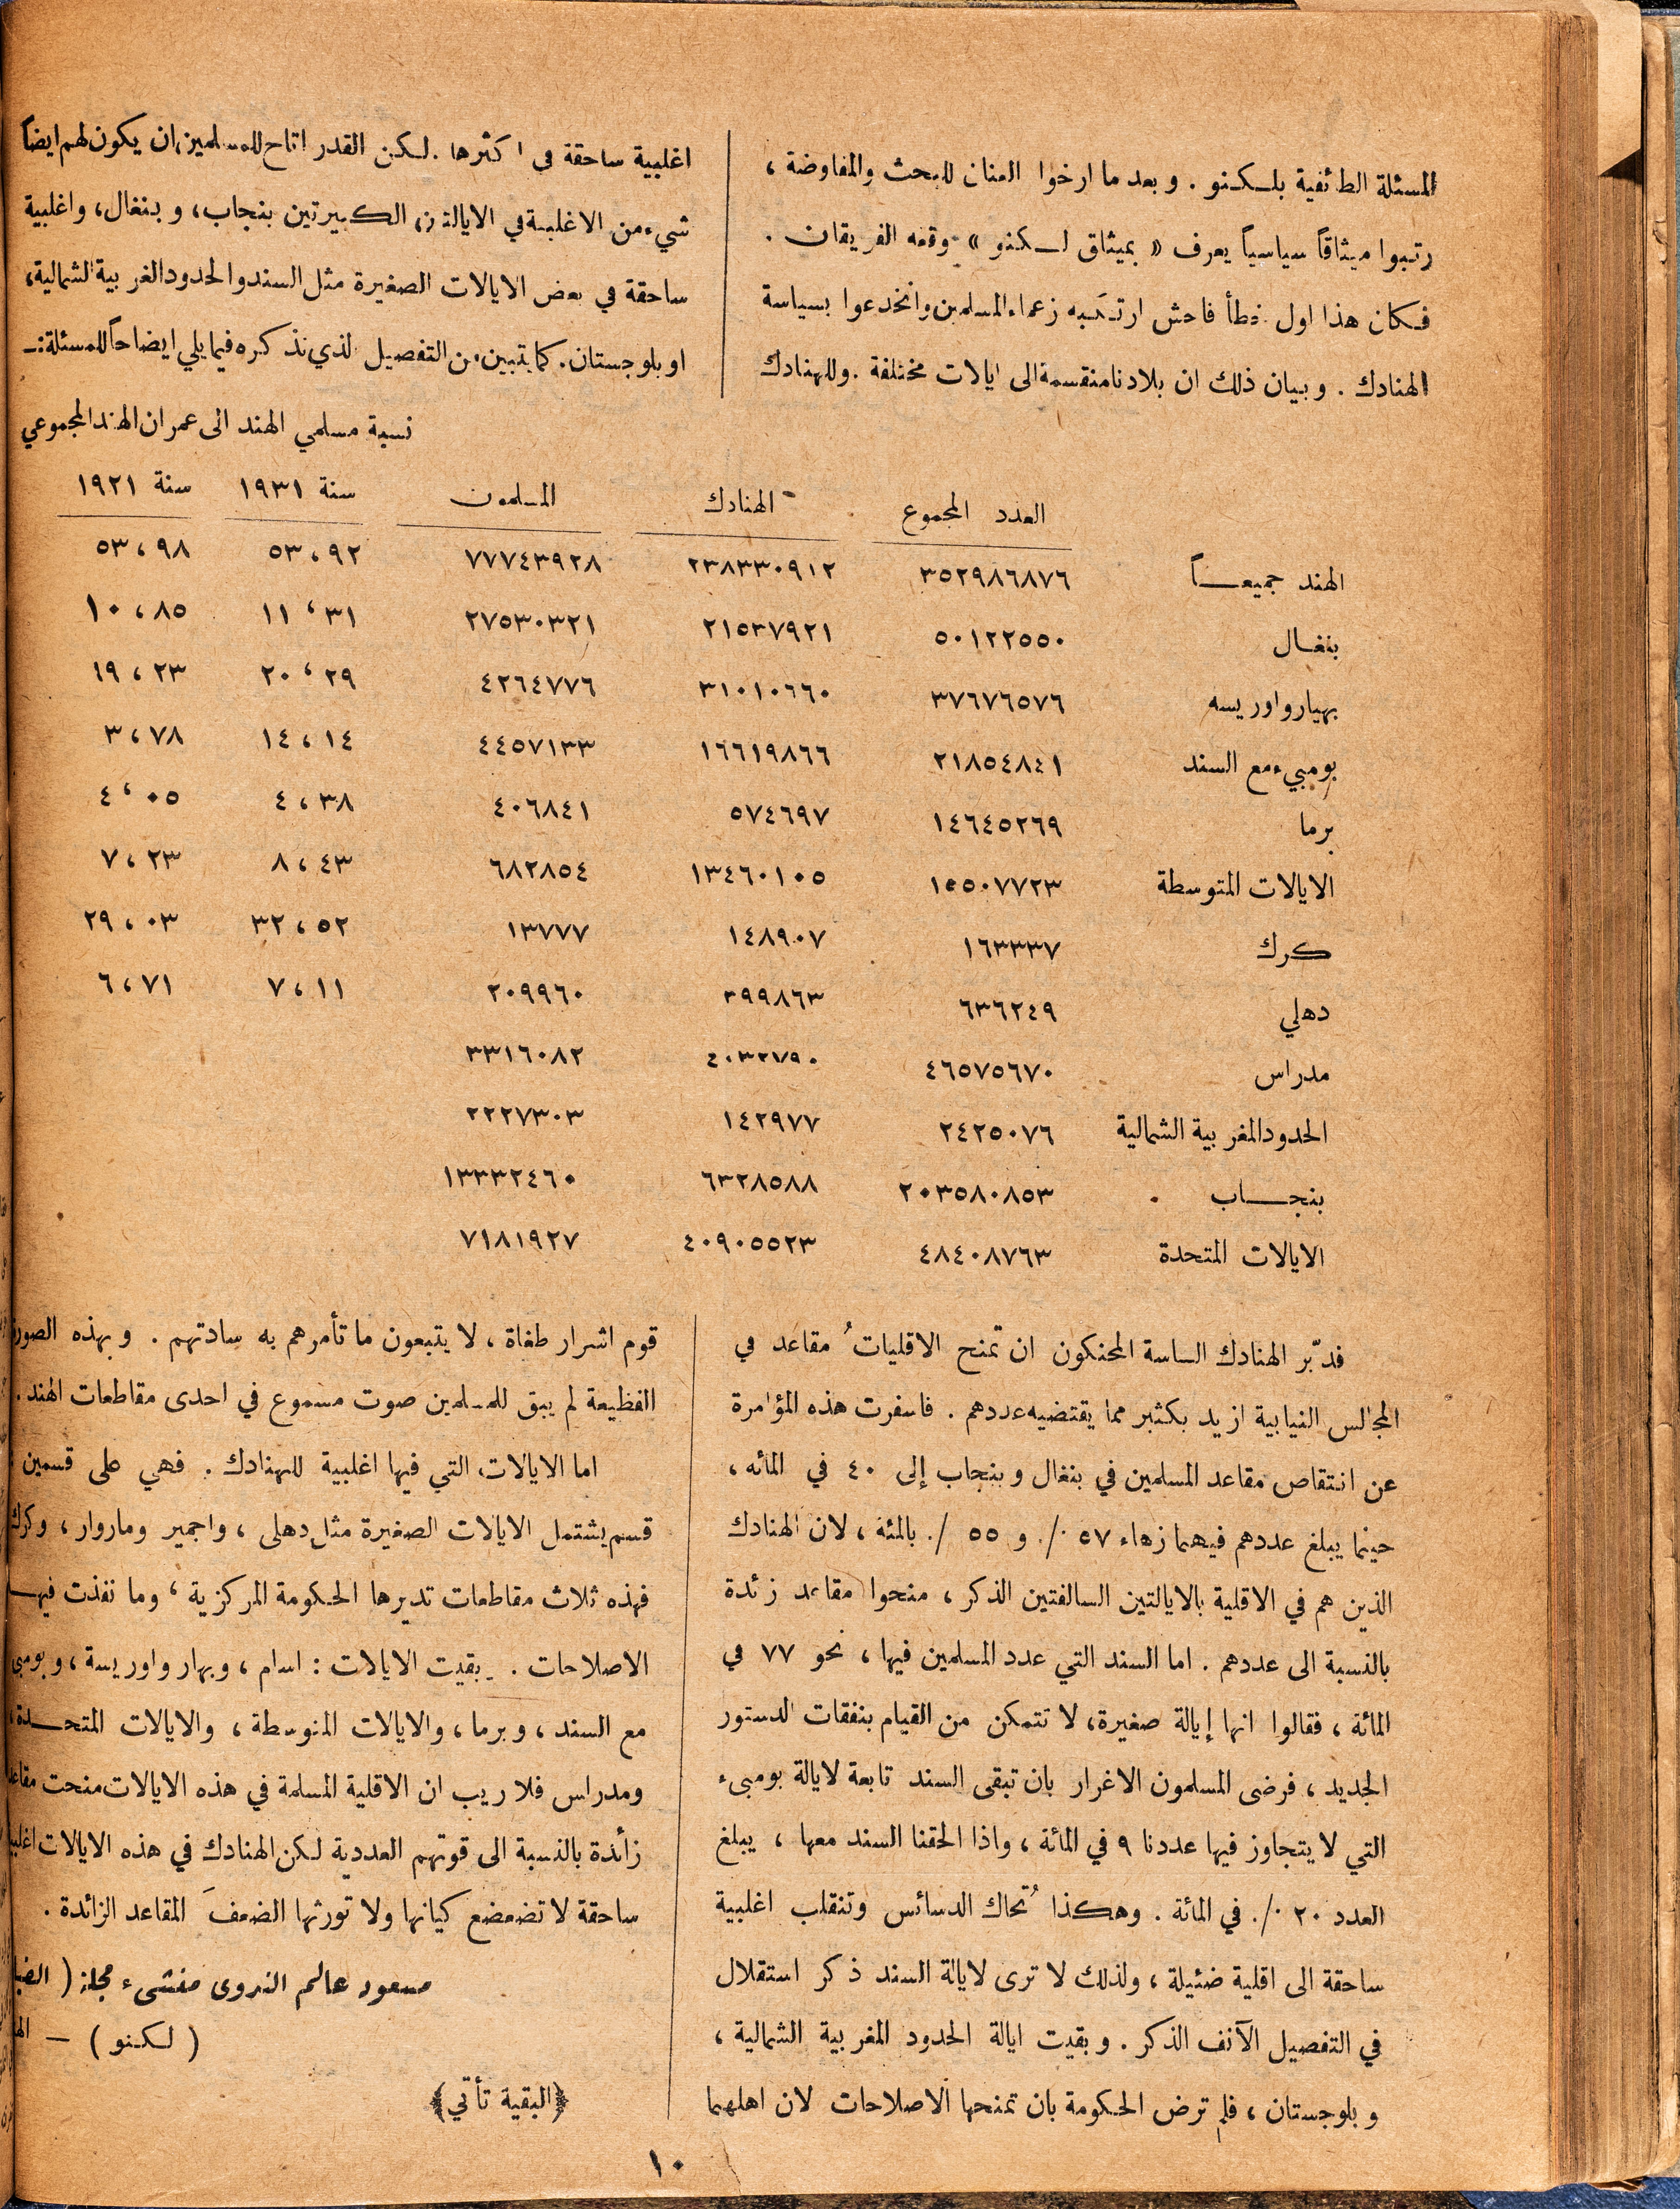 المسئلة الطائفية بلكنو . وبعد ما ارخوا العنان للبحث والمفاوضة ،
رتبوا ميثاقاً سياسياً يعرف « بميثاق لكنو » وقعه الفريقان .
فكان هذا اول خطأ فاحش ارتكبه زعماء المسلمين وانخدعوا بسياسة
الهنادك . وبيان ذلك ان بلادنا منقسمة الى ايالات مختلفة . وللهنادك
اغلبية ساحقة في اكثرها . لكن القدر اتاح للمسلمين، ان يكون لهم ايضاً
شيء من الاغلبية في الايالتين الكبيرتين بنجاب، وبنغال، واغلبية
ساحقة في بعض الايالات الصغيرة مثل السند والحدود الغربية الشمالية،
او بلوجستان. كما يتبين من التفصيل الذي نذكره فيما يلي ايضاحاً للمسئلة :ـ
نسبة مسلمي الهند الى عمران الهند المجموعي
العدد المجموع الهنادك المسلمون سنة ١٩٣١ سنة ١٩٢١
الهند جميعاً ٣٥٢٩٨٦٨٧٦ ٢٣٨٣٣٠٩١٢ ٧٧٧٤٣٩٢٨ ٥٣،٩٢ ٥٣،٩٨
بنغال ٥٠١٢٢٥٥٠ ٢١٥٣٧٩٢١ ٢٧٥٣٠٣٢١ ١١،٣١ ١٠،٨٥
بهيار واوريسه ٣٧٦٧٦٥٧٦ ٣١٠١٠٦٦٠ ٤٢٦٤٧٧٦ ٢٠،٢٩ ١٩،٢٣
بومبيء مع السند ٢١٨٥٤٨٤١ ١٦٦١٩٨٦٦ ٤٤٥٧١٣٣ ١٤،١٤ ٣،٧٨
برما ١٤٦٤٥٢٦٩ ٥٧٤٦٩٧ ٤٠٦٨٤١ ٤،٣٨ ٤،٠٥
الايالات المتوسطة ١٥٥٠٧٧٢٣ ١٣٤٦٠١٠٥ ٦٨٢٨٥٤ ٨،٤٣ ٧،٢٣
كرك ١٦٣٣٣٧ ١٤٨٩٠٧ ١٣٧٧٧ ٣٢،٥٢ ٢٩،٠٣
دهلي ٦٣٦٢٤٩ ٣٩٩٨٦٣ ٢٠٩٩٦٠ ٧،١١ ٦،٧١
مدراس ٤٦٥٧٥٦٧٠ ٤٠٣٢٧٩٠ ٣٣١٦٠٨٢
الحدود المغربية الشمالية ٢٤٢٥٠٧٦ ١٤٢٩٧٧ ٢٢٢٧٣٠٣
بنجاب ٢٠٣٥٨٠٨٥٣ ٦٣٢٨٥٨٨ ١٣٣٣٢٤٦٠
الايالات المتحدة ٤٨٤٠٨٧٦٣ ٤٠٩٠٥٥٢٣ ٧١٨١٩٢٧
فدبّر الهنادك الساسة المحنكون ان تمنح الاقلياتُ مقاعد في
المجالس النيابية ازيد بكثير مما يقتضيه عددهم . فاسفرت هذه المؤامرة
عن انتقاص مقاعد المسلمين في بنغال وبنجاب إلى ٤٠ في المائه ،
حينما يبلغ عددهم فيهما زهاء ٥٧ ./· و ٥٥ ./· بالمئة ، لان الهنادك
الذين هم في الاقلية بالايالتين السالفتين الذكر ، منحوا مقاعد زئدة
بالنسبة الى عددهم . اما السند التي عدد المسلمين فيها ، نحو ٧٧ في
المائة ، فقالوا انها إيالة صغيرة، لا تتمكن من القيام بنفقات الدستور
الجديد ، فرضى المسلمون الاغرار بان تبقى السند تابعة لايالة بومبىء
التي لا يتجاوز فيها عددنا ٩ في المائة ، واذا الحقنا السند معها ، يبلغ
العدد ٢٠ ./· في المائة . وهكذا تُحاك الدسائس وتنقلب اغلبية
ساحقة الى اقلية ضئيلة ، ولذلك لا ترى لايالة السند ذكر استقلال
في التفصيل الآنف الذكر . وبقيت ايالة الحدود المغربية الشمالية ،
وبلوجستان ، فلم ترض الحكومة بان تمنحها الاصلاحات لان اهلهما
قوم اشرار طغاة ، لا يتبعون ما تأمرهم به سادتهم . وبهذه الصورة
الفظيعة لم يبق للمسلمين صوت مسموع في احدى مقاطعات الهند .
اما الايالات، التي فيها اغلبية للهنادك . فهي على قسمين :
قسم يشتمل الايالات الصغيرة مثل دهلى ، واجمير وماروار ، وكرك
فهذه ثلاث مقاطعات تديرها الحكومة المركزية ، وما نفذت فيها
الاصلاحات . بقيت الايالات : اسام ، وبهار واوريسة ، وبومبي
مع السند ، وبرما ، والايالات المتوسطة ، والايالات المتحدة ،
ومدراس فلا ريب ان الاقلية المسلمة في هذه الايالات منحت مقاعد
زائدة بالنسبة الى قوتهم العددية لكن الهنادك في هذه الايالات
ساحقة لا تضعضع كيانها ولا تورثها الضعفَ المقاعد الزائدة .
مسعود عالم الندوى منشىء مجلة (
( لكنو ) —
﴿البقية تأتي﴾
١٠